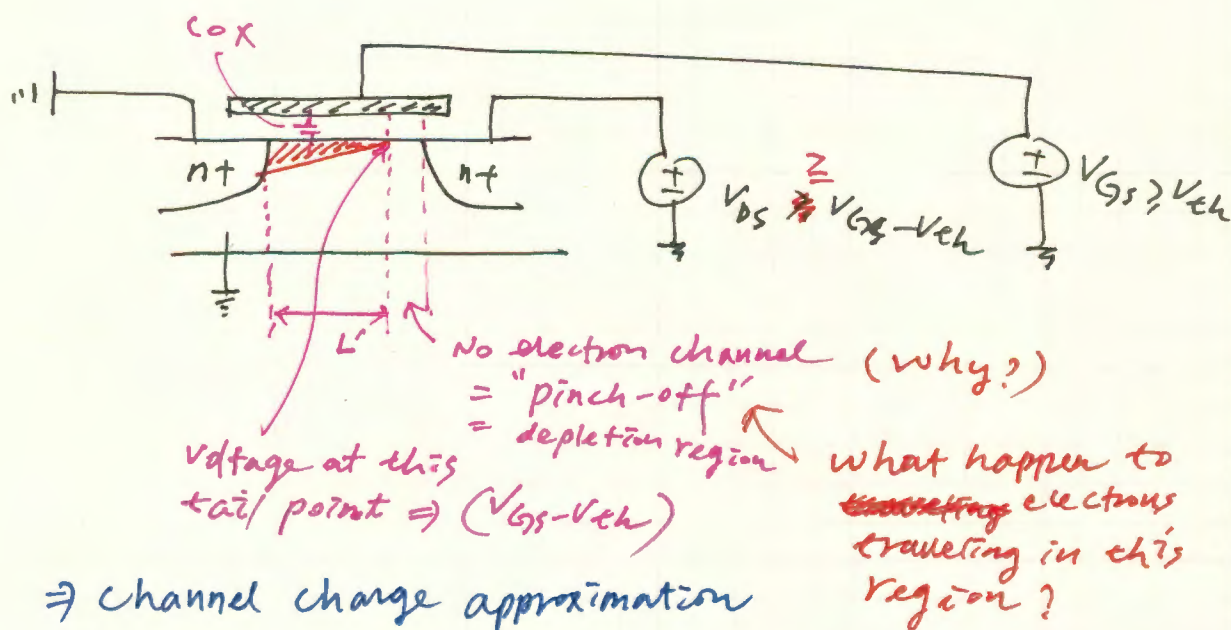 Cox
n+
n+
V_DS ≥ V_GS - V_th
V_GS ≥ V_th
L'
No electron channel (why?)
= "pinch-off"
= depletion region
Voltage at this
tail point ⇒ (V_GS - V_th)
what happen to
electrons
traveling in this
region?
⇒ channel charge approximation